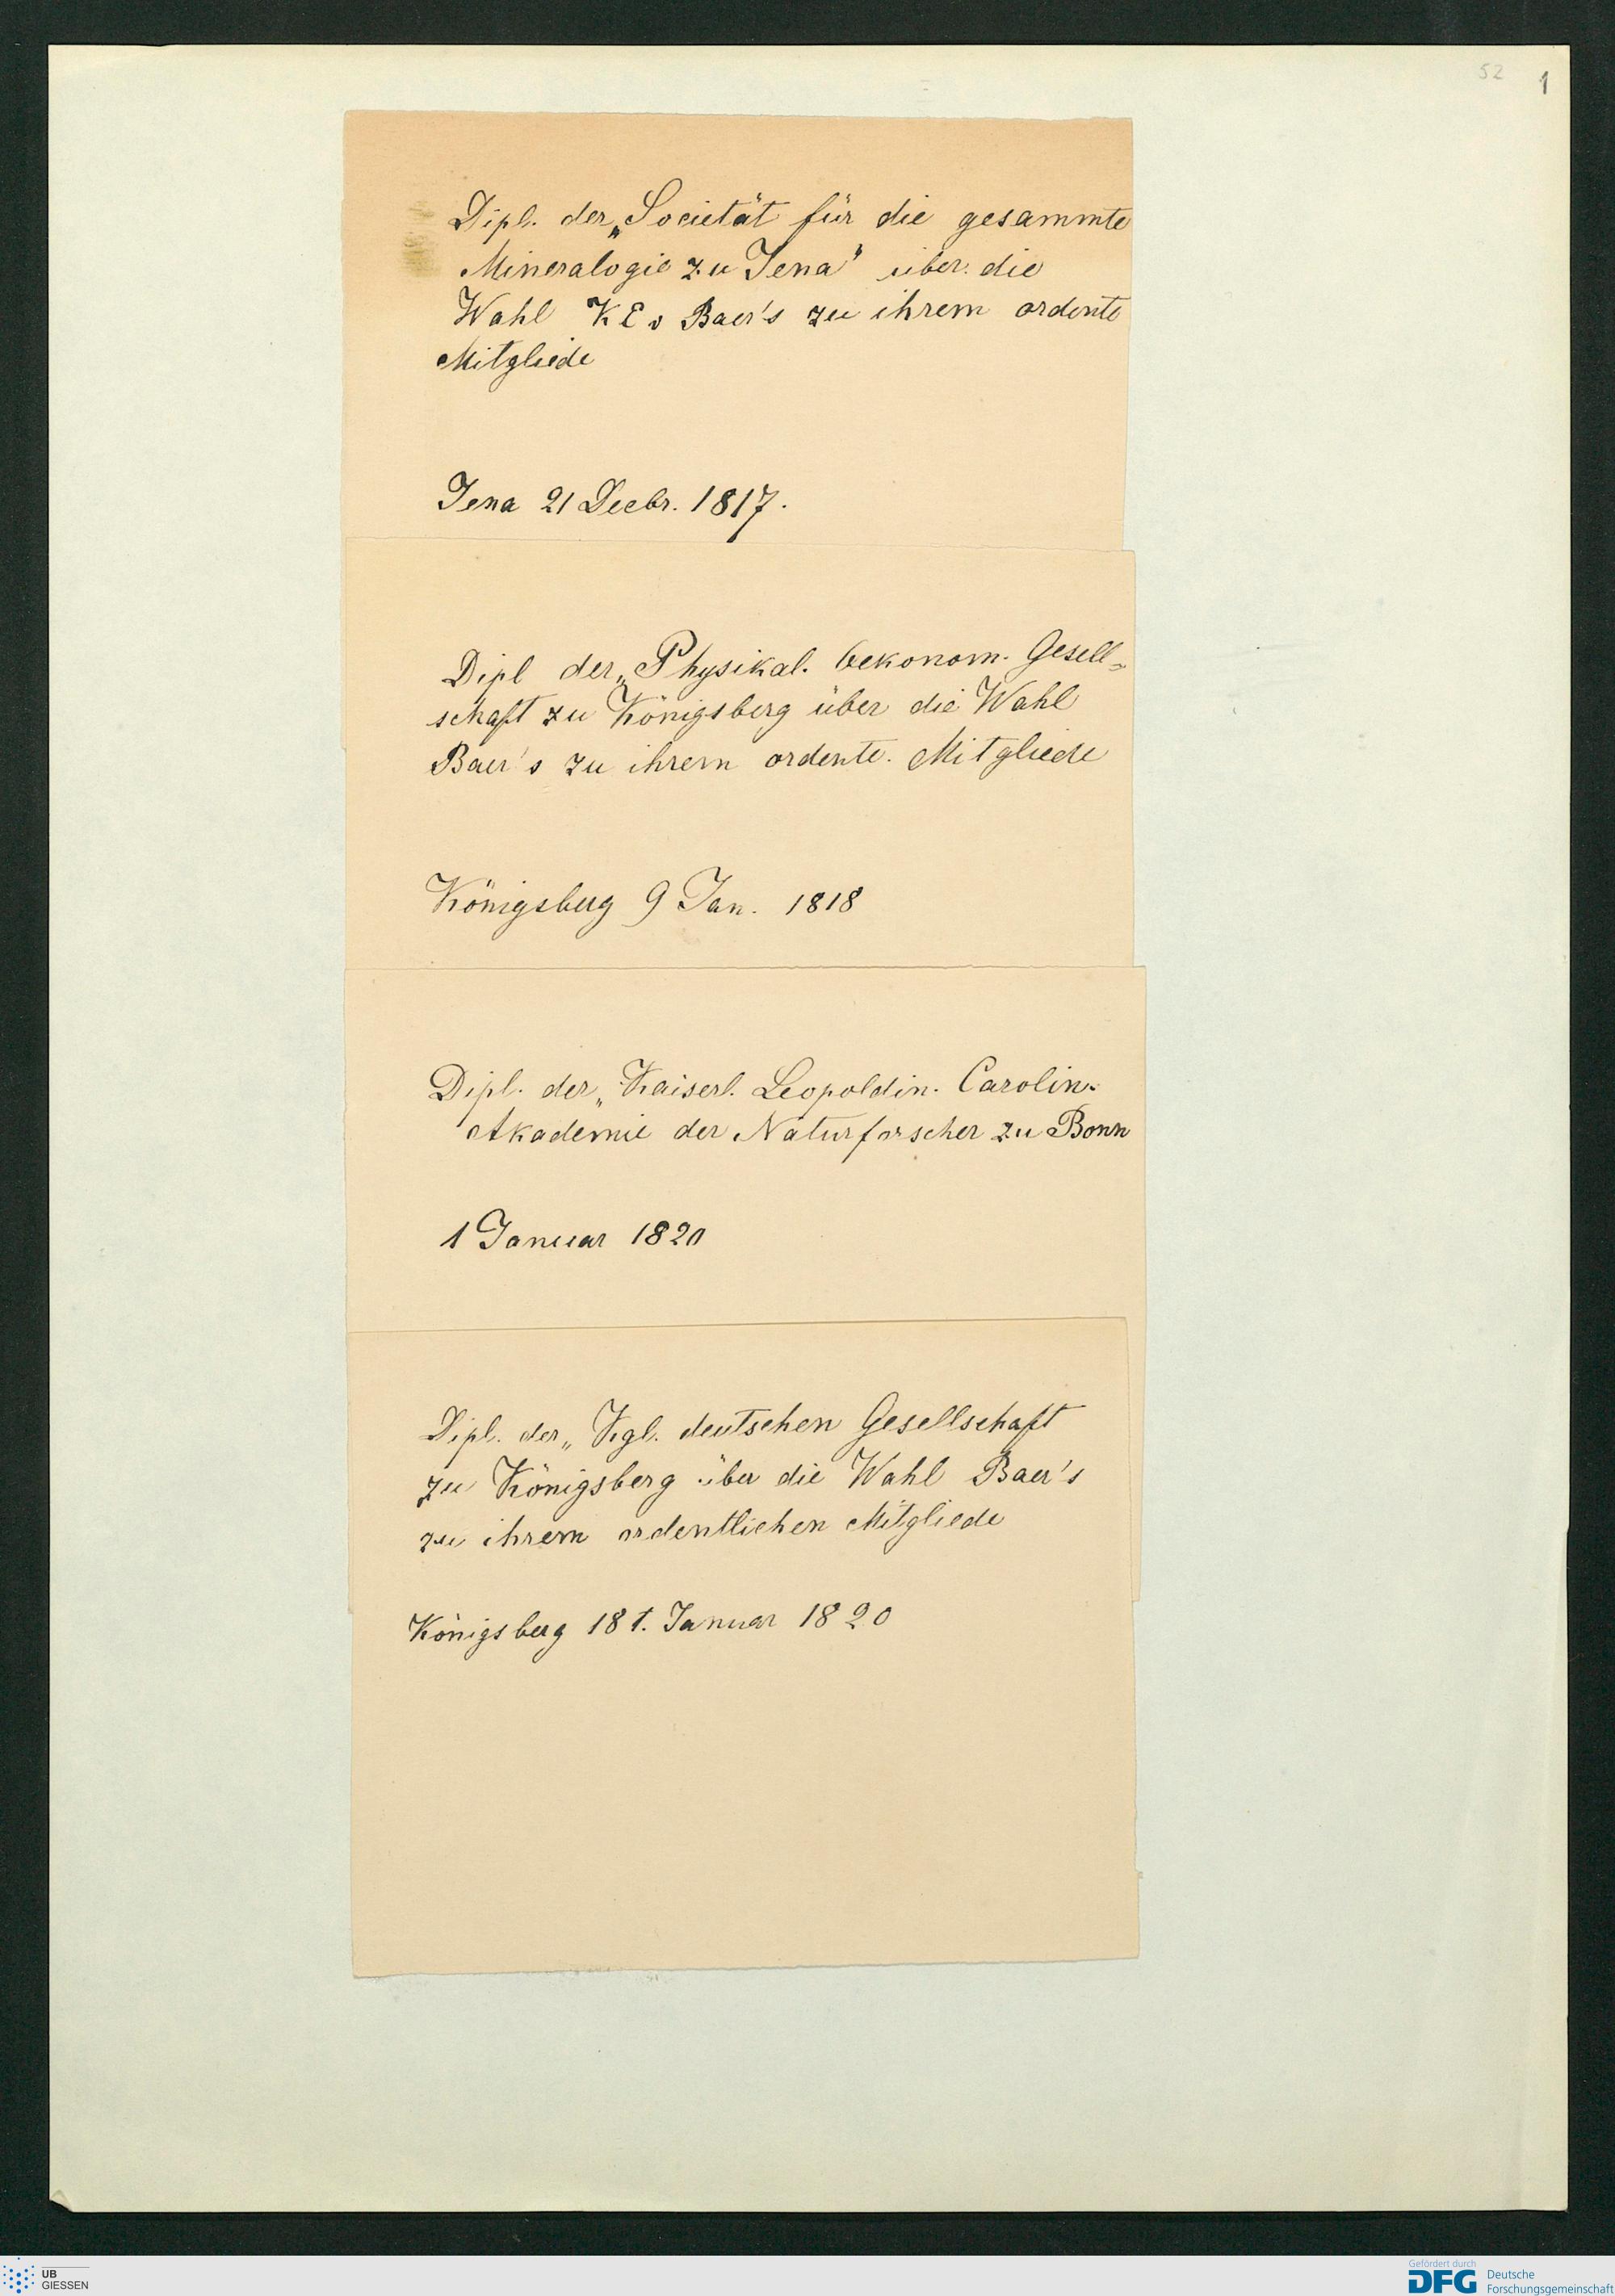 52 1
Dipl. der „Societät für die gesammte
Mineralogie zu Jena" über die
Wahl K E v Baer's zu ihrem ordente
Mitgliede
Jena 21 Decbr. 1817.
Dipl der „Physikal. oekonom. Gesell=
schaft zu Königsberg über die Wahl
Baer's zu ihrem ordente. Mitgliede
Königsberg 9 Jan. 1818
Dipl. der „Kaiserl. Leopoldin. Carolin.
Akademie der Naturforscher zu Bonn
1 Januar 1820
Dipl. der „Kgl. deutschen Gesellschaft
zu Königsberg über die Wahl Baer's
zu ihrem ordentlichen Mitgliede
Königsberg 18 t. Januar 1820
UB
GIESSEN
Gefördert durch
DFG Deutsche
Forschungsgemeinschaft